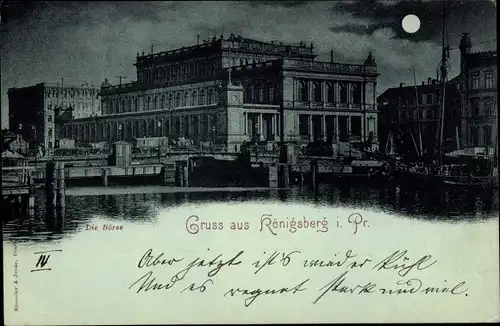 Die Börse
Gruss aus Königsberg i. Pr.
IV
Aber jetzt ist's wieder kühl
Und es regnet stark und viel.